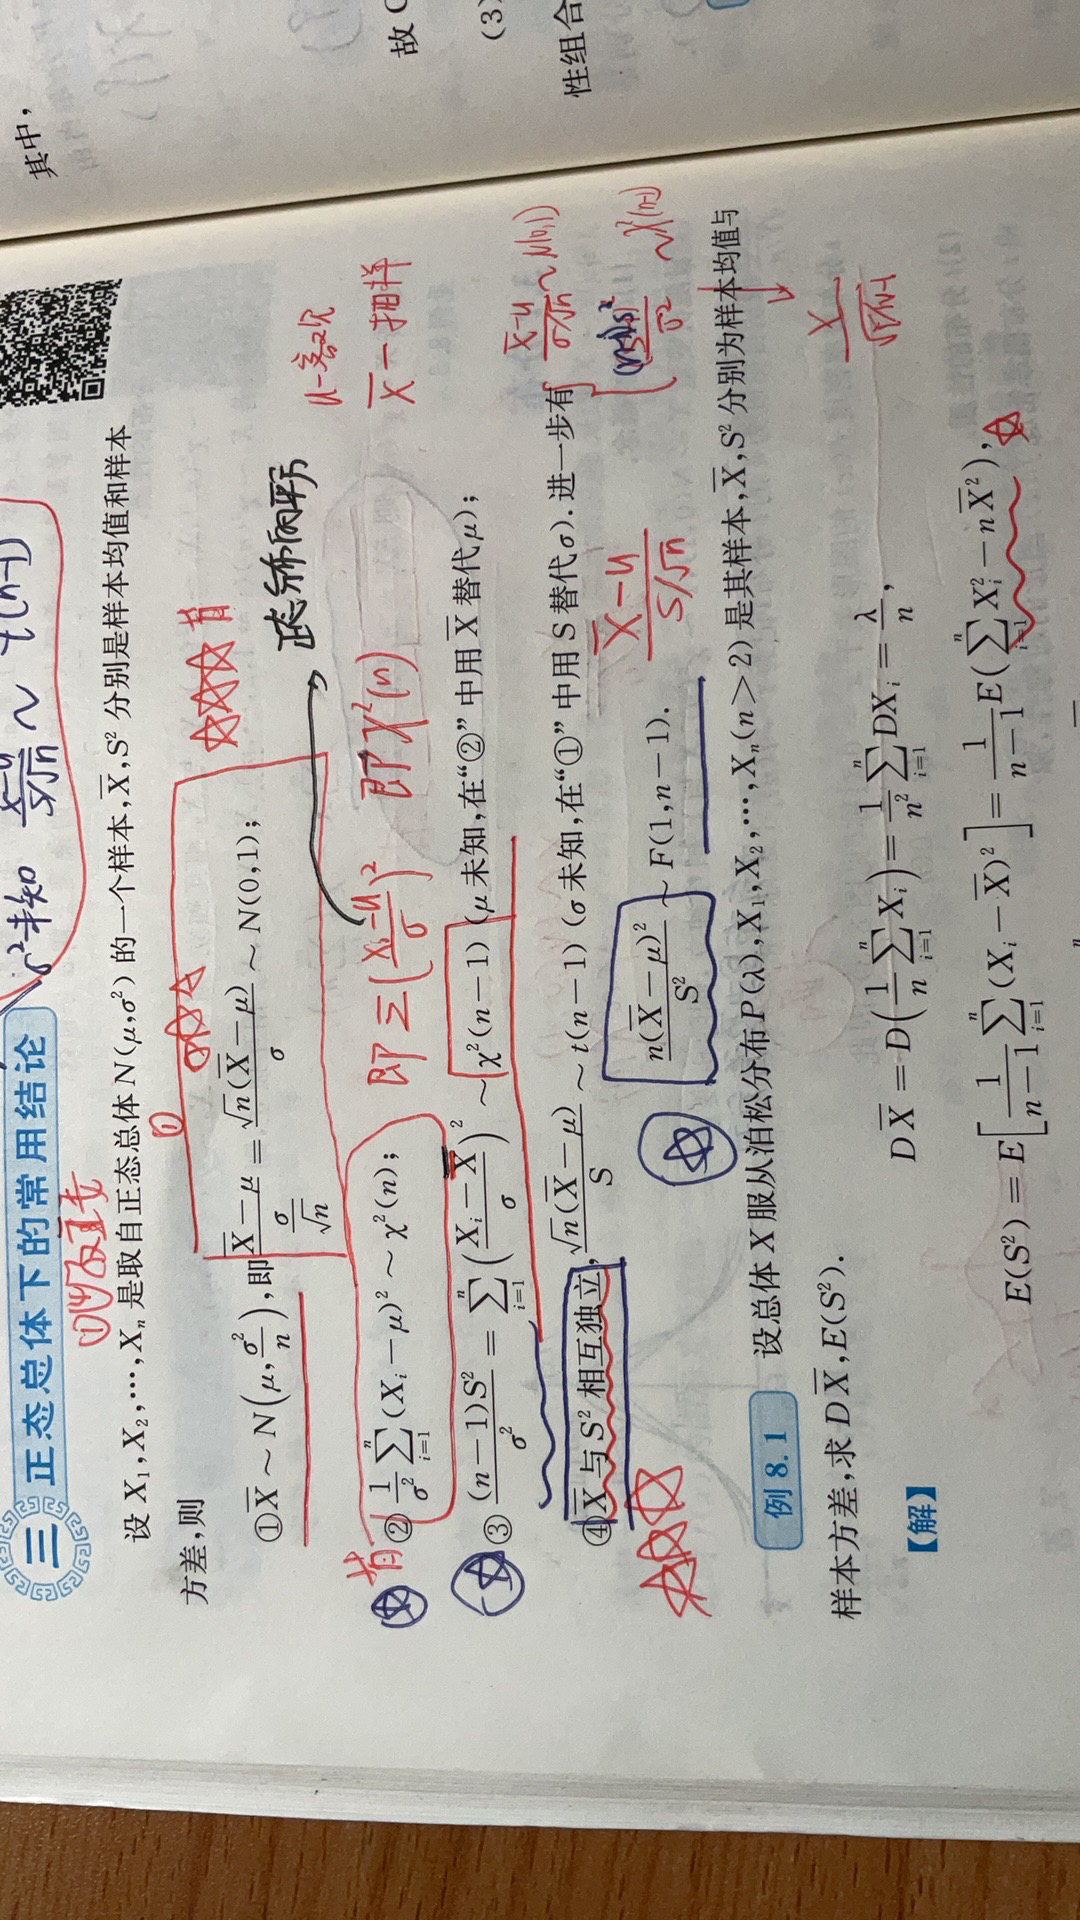 其中，
故
(3)
性组合
σ²未知 ~ t(n-1)
三 正态总体下的常用结论
设 X₁,X₂,⋯,Xₙ 是取自正态总体 N(μ,σ²) 的一个样本,X̄,S² 分别是样本均值和样本
方差,则
①X̄ ~ N(μ, σ²/n),即 (X̄-μ)/(σ/√n) = √n(X̄-μ)/σ ~ N(0,1);
背
正态分布的平方
X̄-抽样
背
②1/σ² ∑ᵢ₌₁ⁿ (Xᵢ-μ)² ~ χ²(n);
即 Σ((Xᵢ-u)/σ)² 即χ²(n)
③(n-1)S²/σ² = ∑ᵢ₌₁ⁿ ((Xᵢ-X̄)/σ)² ~ χ²(n-1) (μ 未知,在“②”中用 X̄ 替代 μ);
(X̄-u)/(σ/√n) ~ N(0,1)
④X̄ 与 S² 相互独立, √n(X̄-μ)/S ~ t(n-1) (σ 未知,在“①”中用 S 替代 σ). 进一步有
(n-1)S²/σ² ~ χ²(n-1)
(X̄-u)/(S/√n)
n(X̄-μ)²/S² ~ F(1,n-1).
例 8.1 设总体 X 服从泊松分布 P(λ),X₁,X₂,⋯,Xₙ(n>2) 是其样本,X̄,S² 分别为样本均值与
样本方差,求 DX̄,E(S²).
【解】
DX̄ = D(1/n ∑ᵢ₌₁ⁿ Xᵢ) = 1/n² ∑ᵢ₌₁ⁿ DXᵢ = λ/n,
E(S²) = E[1/(n-1) ∑ᵢ₌₁ⁿ (Xᵢ-X̄)²] = 1/(n-1) E(∑ᵢ₌₁ⁿ Xᵢ² - nX̄²),